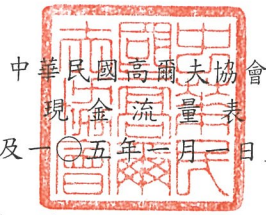 中華民國高爾夫協會
現金流量表
及一〇五年一月一日